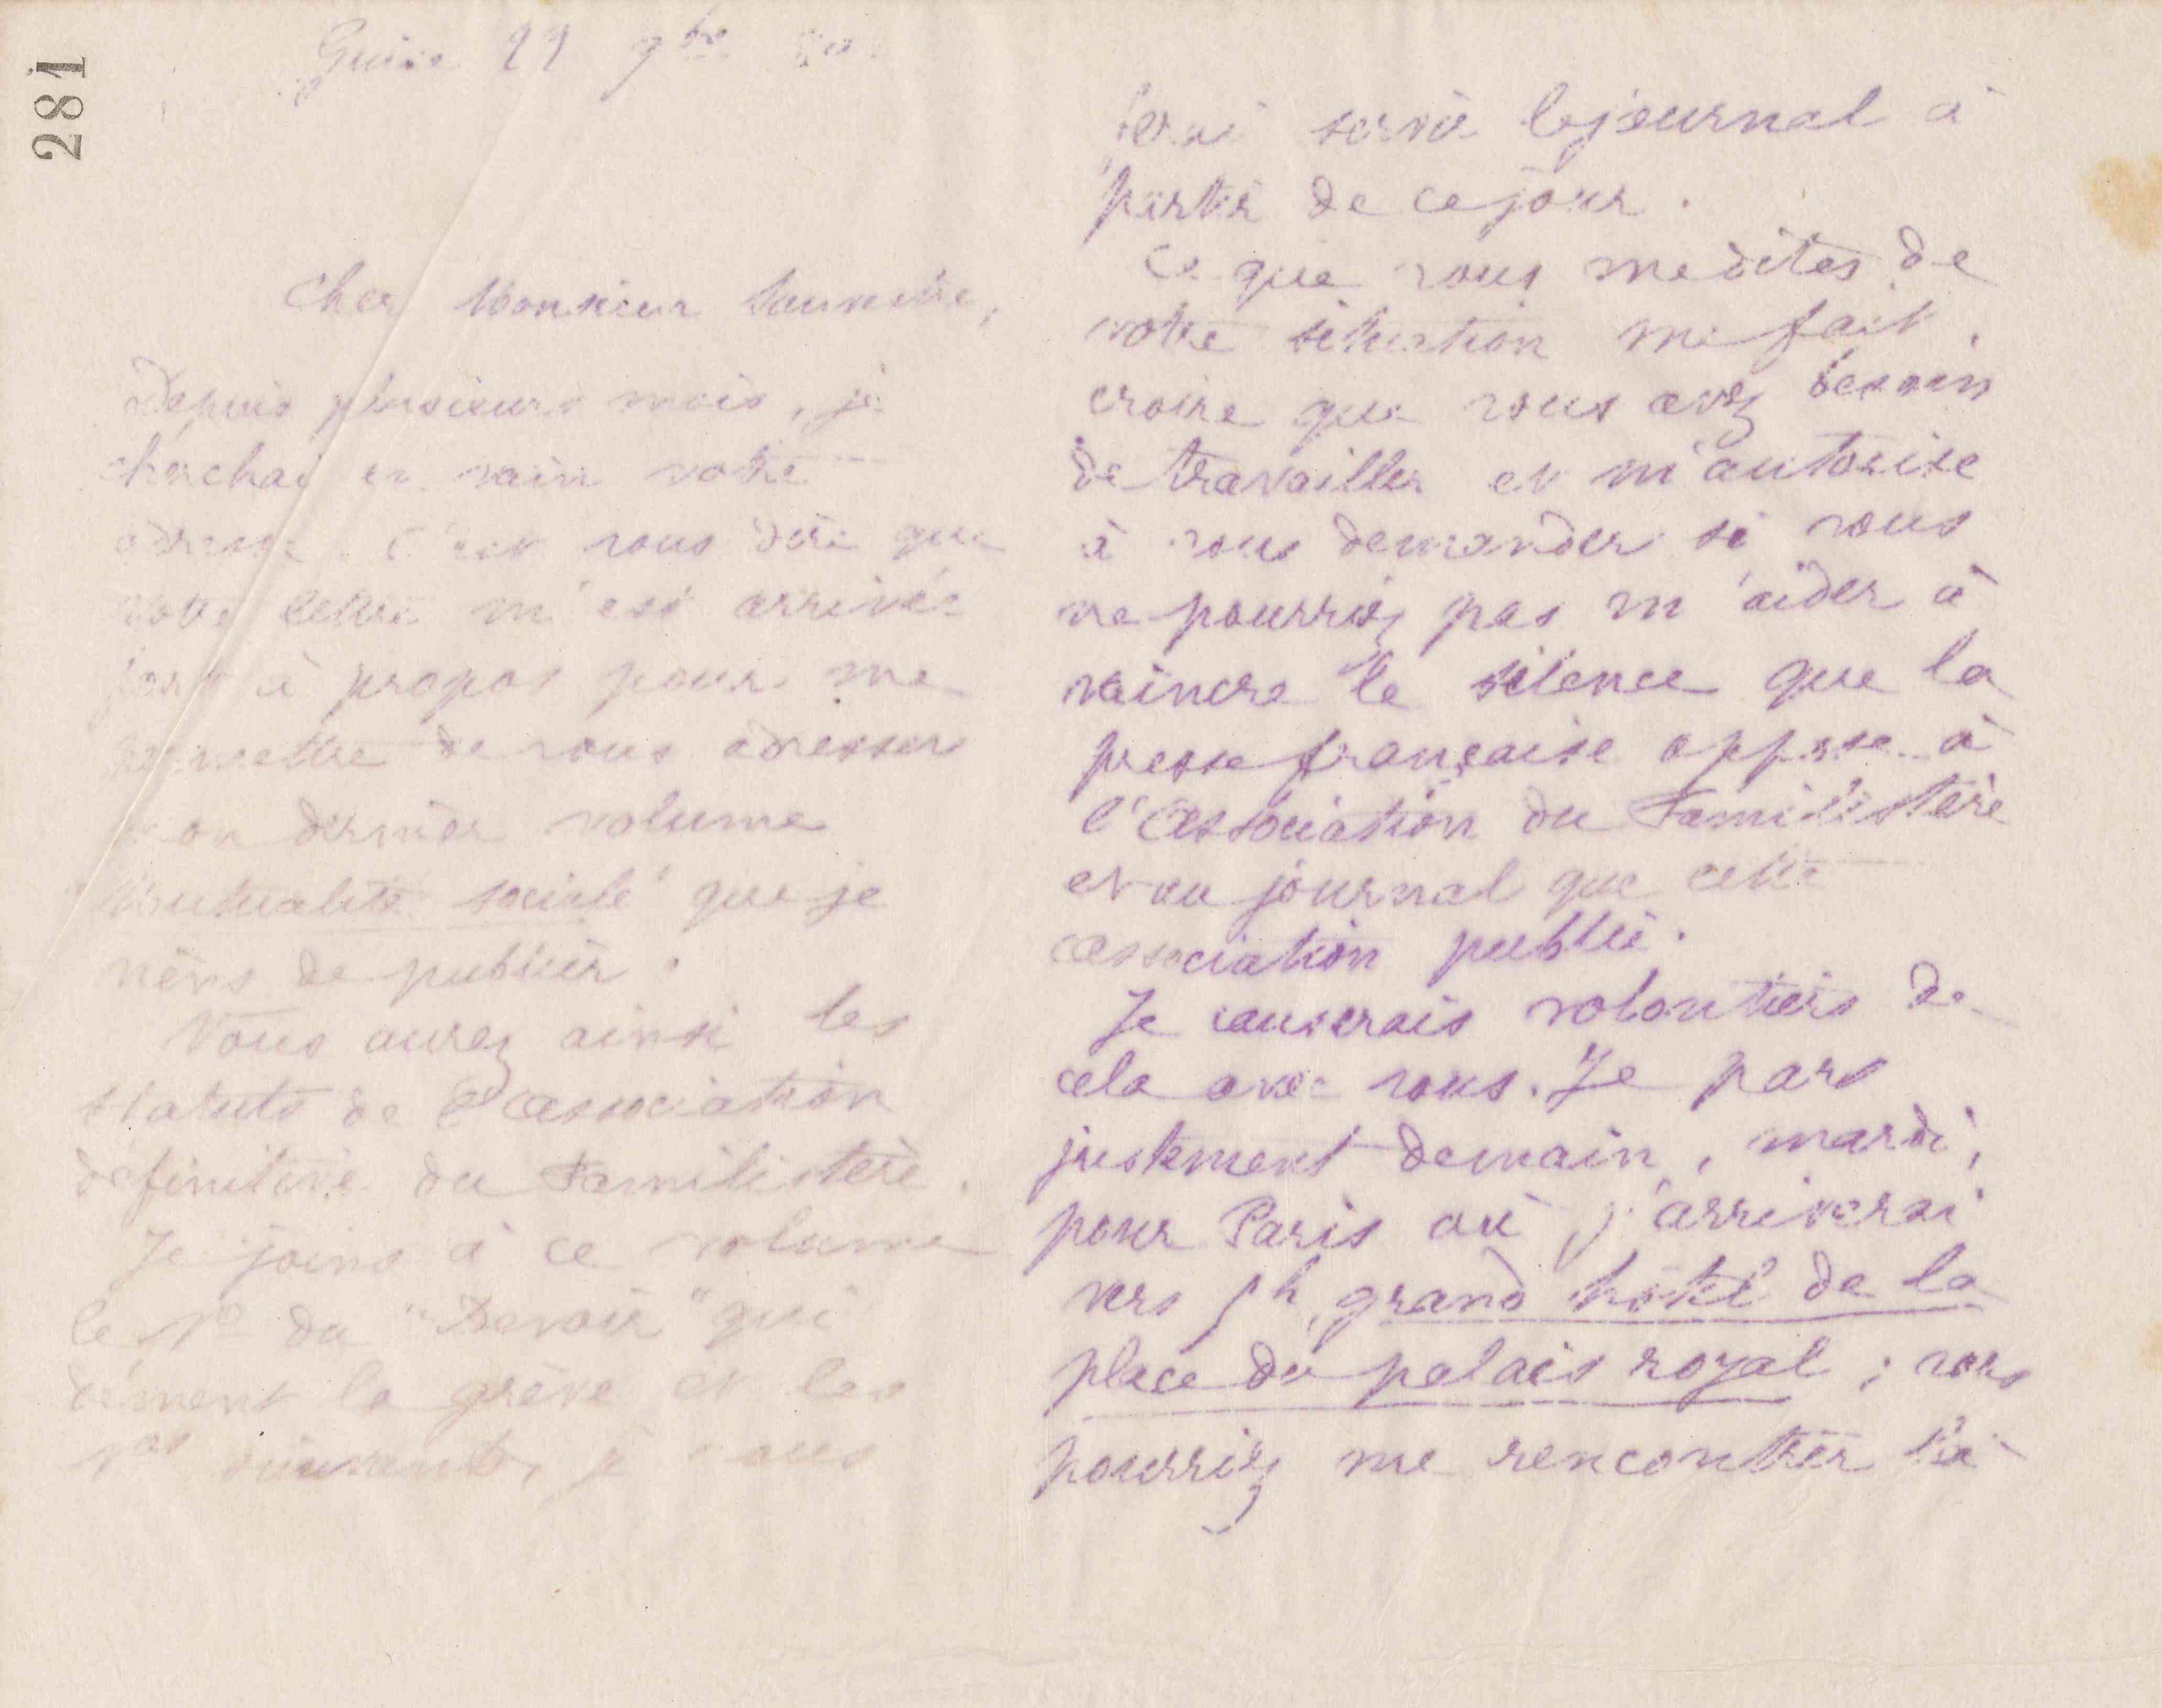 281
Guise 22 9bre 80
Cher Monsieur Sauvestre,
Depuis plusieurs mois, je
cherchai en vain votre
adresse. C'est vous dire que
votre lettre m'est arrivée
fort à propos pour me
permettre de vous adresser
mon dernier volume
"Mutualité sociale" que je
viens de publier.
Vous aurez ainsi les
statuts de l'association
définitive du Familistère.
Je joins à ce volume
le no du "Devoir" qui
dément la grève et les
nos suivants, je vous
ferai servir le journal à
partir de ce jour.
Ce que vous me dites de
votre situation me fait
croire que vous avez besoin
de travailler et m'autorise
à vous demander si vous
ne pourriez pas m'aider à
vaincre le silence que la
presse française oppose à
l'association du Familistère
et au journal que cette
association publie.
Je causerais volontiers de
cela avec vous. Je pars
justement demain, mardi,
pour Paris où j'arriverai
vers h, grand hôtel de la
place du palais royal ; vous
pourriez me rencontrer là